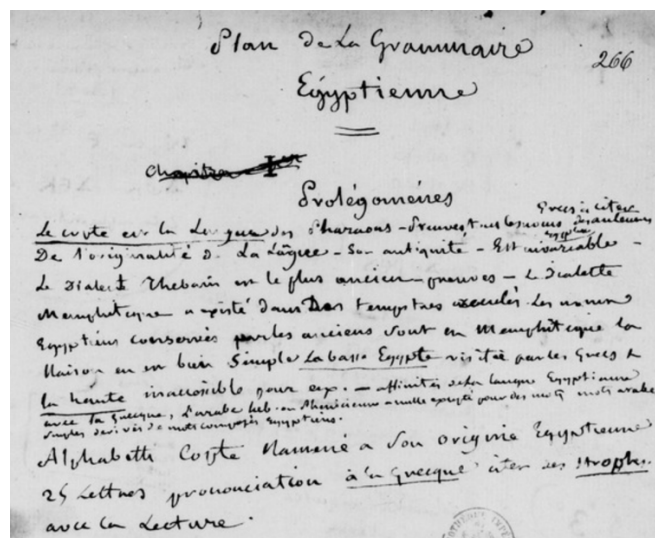 Plan de La Grammaire
266
Egyptienne
Chapitre I
Prolégomènes
Le copte est la Langue des Pharaons - Preuves tous les noms Egyptiens Grecs à citer
De l'originalité de La Langue - Son antiquité - Est invariable -
Le Dialecte Thebain est le plus ancien preuves - Le Dialecte
Memphitique a existé dans Des temps très reculés Les noms
Egyptiens conservés par les anciens sont en Memphitique la
Raison en est bien Simple La basse Egypte visitée par les Grecs &
la haute inaccessible pour eux. - affinités de la langue Egyptienne
avec la Grecque, l'arabe heb. ou Phénicienne - nulle excepté pour des mots mots arabes
simples dérivés de mots composés Egyptiens.
Alphabeth Copte Ramené a Son origine Egyptienne
25 Lettres prononciation à la Grecque citer des strophes.
avec la Lecture.